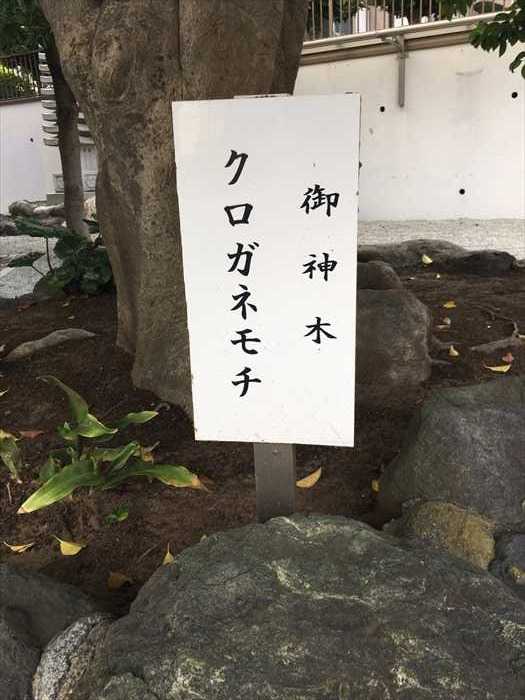 御神木
クロガネモチ